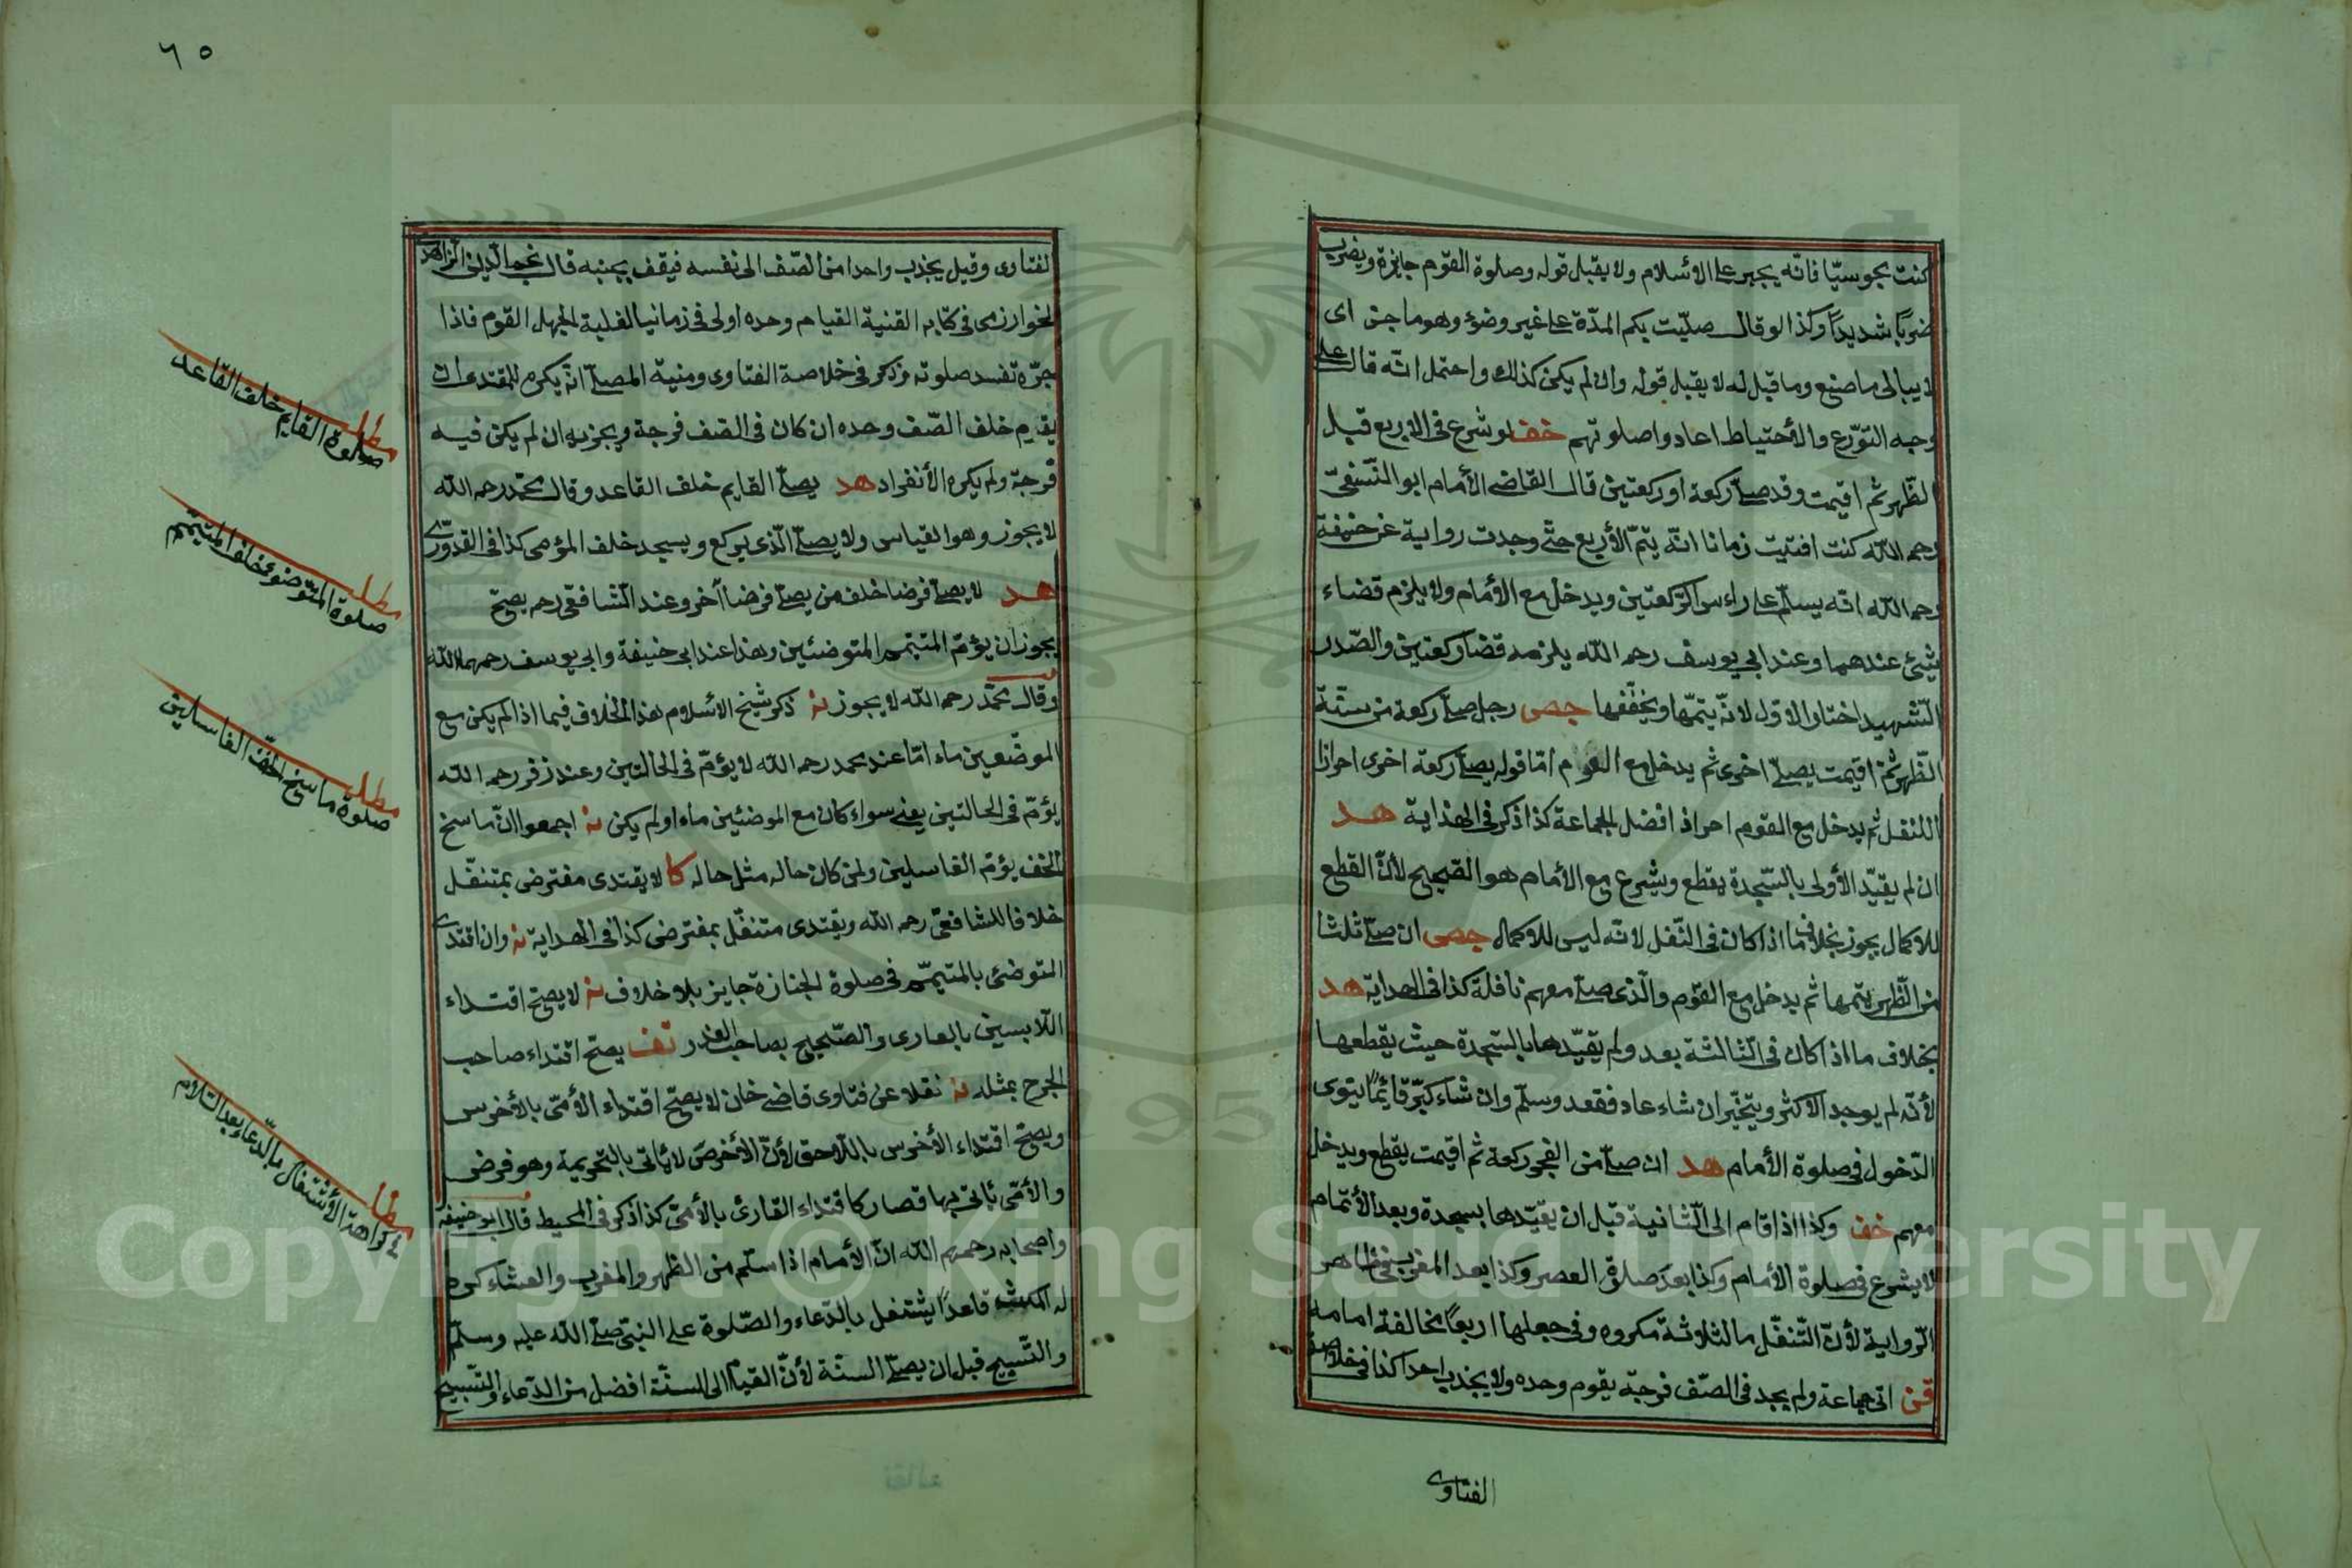 كنت مجوسيّا فانّه يجبر على الأسلام ولا يقبل قوله وصلوة القوم جايزة ويضرب
ضربًا شديدًا وكذا لو قال صلّيت بكم المدّة على غير وضوء وهو ماجن اى
لا يبالى ما صنع وما قبل له لا يقبل قوله وان لم يكن كذلك واحتمل انّه قال على
وجه التورّع والأحتياط اعادوا صلوتهم خف لو شرع فى الاربع قبل
الظّهر ثم اقيمت وقد صلّى ركعة او ركعتين قال القاضى الأمام ابو النّسفىّ
رحمه اللّه كنت افتيت زمانا انّه يتمّ الأربع حتّى وجدت رواية عن حنيفة
رحمه اللّه انّه يسلّم على رأس الرّكعتين ويدخل مع الأمام ولا يلزم قضاء
شيئ عندهما وعند ابي يوسف رحمه اللّه يلزمه قضا ركعتين والصّدر
الشّهيد اختار الاوّل لانّه يتمّها ويخفّفها جص رجل صلّى ركعة من سنّة
الظّهر ثمّ اقيمت يصلّى اخرى ثم يدخل مع القوم امّا قوله يصلّى ركعة اخرى احرازا
للنفل ثم يدخل مع القوم احراز افضل الجماعة كذا ذكر فى الهداية هد
ان لم يقيّد الأولى بالسّجدة يقطع ويشرع مع الأمام هو الصّحيح لأنّ القطع
للاكمال يجوز بخلاف ما اذا كان فى النّفل لانّه ليس للاكمال جص ان صلّى ثلثا
من الظّهر يتمها ثم يدخل مع القوم والّذى صلّى معهم نافلة كذا فى الهداية هد
بخلاف ما اذا كان فى الثّالثة بعد ولم يقيّدها بالسّجدة حيث يقطعها
لأنّه لم يوجد الاكثر ويتخيّر ان شاء عاد فقعد وسلّم وان شاء كبّر قائمًا ينوى
الدّخول فى صلوة الأمام هد ان صلّى من الفجر ركعة ثم اقيمت يقطع ويدخل
معهم خف وكذا اذا قام الى الثّانية قبل ان يقيّدها بسجدة وبعد الأتمام
لا يشرع فى صلوة الأمام وكذا بعد صلوة العصر وكذا بعد المغرب فى ظاهر
الرّواية لأنّ التّنفّل بالثلاثة مكروه وفى جعلها اربعًا مخالفة امامه
قن اتى جماعة ولم يجد فى الصّف فرجة يقوم وحده ولا يجذب احدا كذا فى خلاصة
الفتاوى
٦٥
الفتاوى وقيل يجذب واحدا من الصّف الى نفسه فيقف بجنبه قال نجم الدّين الزّاهد
الخوارزمى فى كتابه القنية القيام وحده اولى فى زماننا لغلبة الجهل القوم فاذا
جرّه تفسد صلوته وذكر فى خلاصة الفتاوى ومنية المصلّى انّه يكره للمقتدى ان
يقوم خلف الصّف وحده ان كان فى الصّف فرجة ويجزيه ان لم يكن فيه
فرجة ولم يكره الأنفراد هد يصلّى القايم خلف القاعد وقال محمّد رحمه اللّه
لا يجوز وهو القياس ولا يصلّى الّذى يركع ويسجد خلف المؤمى كذا فى القدورىّ
هد لا يصلّى فرضا خلف من يصلّى فرضا آخر وعند الشّافعى رحمه يصحّ
يجوز ان يؤمّ المتيمّم المتوضئين وهذا عند ابى حنيفة وابي يوسف رحمهما اللّه
وقال محمّد رحمه اللّه لا يجوز نه ذكر شيخ الأسلام هذا الخلاف فيما اذا لم يكن مع
الموضّعين ماء امّا عند محمد رحمه اللّه لا يؤمّ فى الحالتين وعند زفر رحمه اللّه
يؤمّ فى الحالتين يعنى سواء كان مع الموضئين ماء او لم يكن نه اجمعوا انّ ماسح
الخف يؤمّ الغاسلين ولمن كان حاله مثل حاله كا لا يقتدى مفترض بمتنفّل
خلافا للشافعىّ رحمه اللّه ويقتدى متنفّل بمفترض كذا فى الهداية نه وان اقتدى
المتوضئ بالمتيمّم فى صلوة الجنازة جايز بلا خلاف نه لا يصحّ اقتداء
اللّابسين بالعارى والصّحيح بصاحب العذر تف يصحّ اقتداء صاحب
الجرح بمثله نه نقلا عن فتاوى قاضى خان لا يصحّ اقتداء الأمّى بالأخرس
ويصحّ اقتداء الأخرس باللاحق لأنّ الأخرص لا يأتى بالتّحريمة وهو فرض
والأمّى يأتى بها فصار كاقتداء القارئ بالأمىّ كذا ذكر فى المحيط قال ابو حنيفة
واصحابه رحمهم اللّه انّ الأمام اذا سلّم من الظهر والمغرب والعشاء كره
له المكث قاعدًا يشتغل بالدّعاء والصّلوة على النبىّ صلّى اللّه عليه وسلّم
والتّسبيح قبل ان يصلّى السنّة لأنّ القيام الى السنّة افضل من الدّعاء والتّسبيح
مطلب
صلوة القايم خلف القاعد
مطلب
صلوة المتوضئ خلف المتيمّم
مطلب
صلوة ماسح الخفّ الغاسلين
مطلب
فى كراهة الأشتغال بالدّعاء بعد السّلام
Copyright © King Saud University
1957